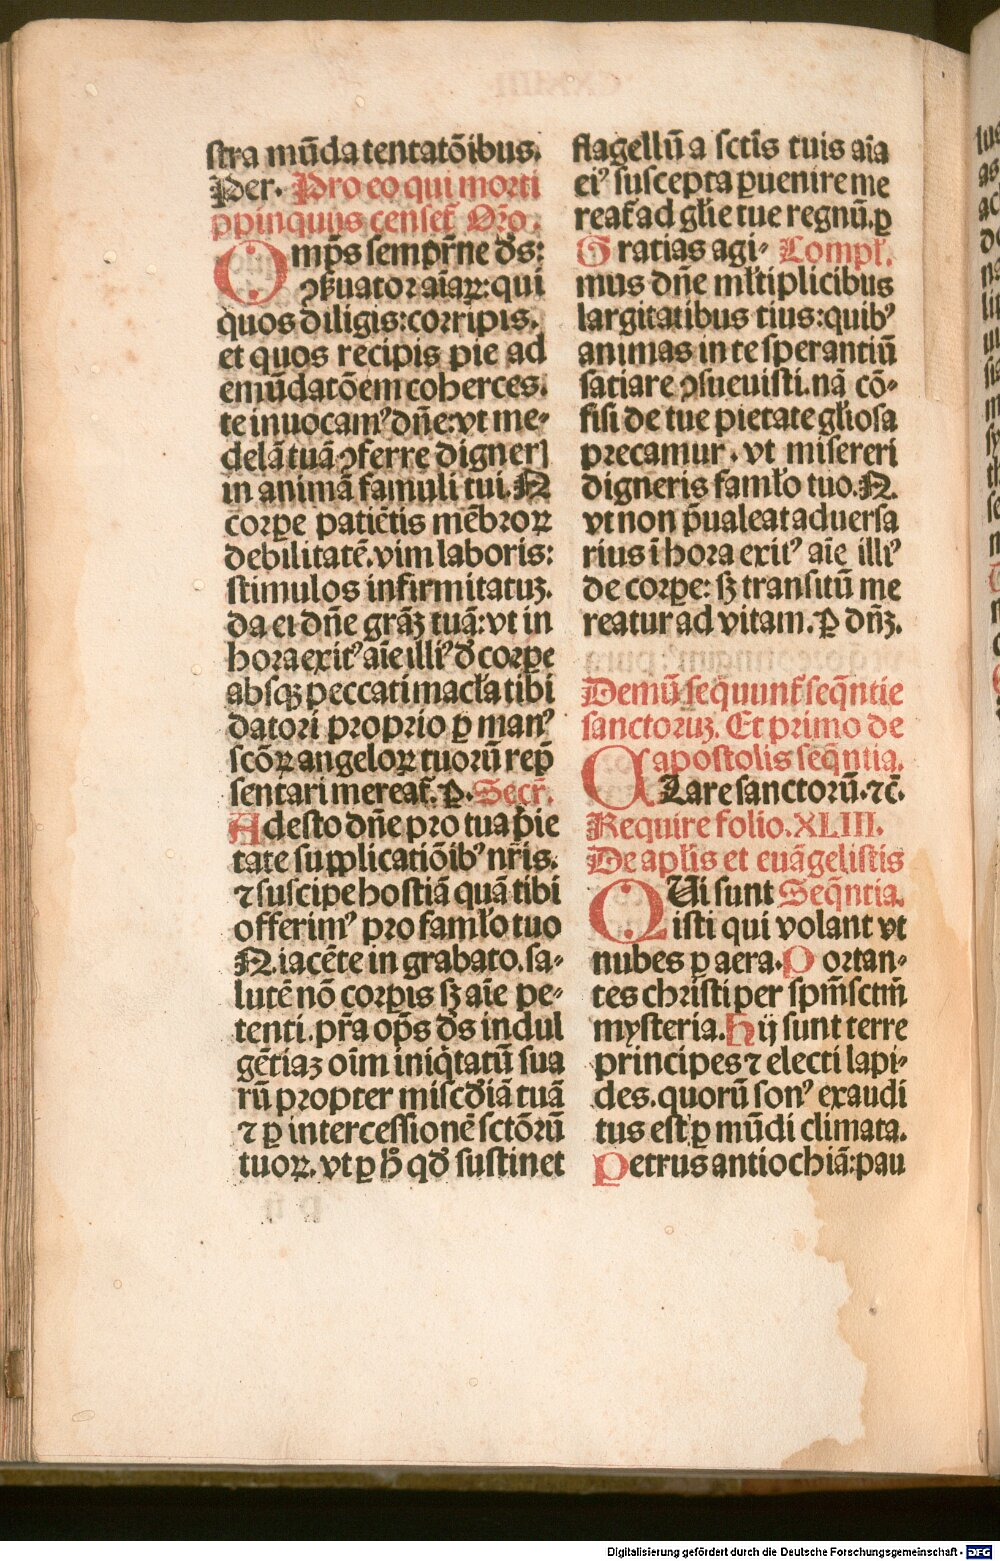 ſtra mūda tentatōibus.
Per. Pro eo qui morti
ꝓpinquus cenſet᷑ Oro.
Omp̄s ſempr̄ne ds̄:
ↄẜuator aīaꝝ: qui
quos diligis: corripis.
et quos recipis pie ad
emūdatōem coherces.
te inuocamꝰ dn̄e: vt me-
delā tuā ↄferre digneri
in animā famuli tui. N
corꝑe patiētis mēbroꝝ
debilitatē. vim laboris:
ſtimulos infirmitatuꝫ.
da ei dn̄e grāꝫ tuā: vt in
hora exitꝰ aīe illiꝰ đ corꝑe
abſqꝫ peccati macl̄a tibi
datori proprio ꝑ manꝰ
ſcōꝝ angeloꝝ tuorū rep̄
ſentari mereat᷑. P̱. Secr̄.
Adeſto dn̄e pro tua pie
tate ſupplicatiōibꝰ nr̄is.
⁊ ſuſcipe hoſtiā quā tibi
offerimꝰ pro faml̄o tuo
N. iacēte in grabato. ſa-
lutē nō corꝑis ſꝫ aīe pe-
tenti. pr̄a op̄s ds̄ indul
gētiaꝫ oīm iniq̄tatū ſua
rū propter miſcđiā tuā
⁊ ꝑ interceſſionē ſctōrū
tuoꝝ. vt ꝑ h̄ qđ ſuſtinet
flagellū a ſctīs tuis aīa
eiꝰ ſuſcepta ꝑuenire me
reat᷑ ad gl̄ie tue regnū. ꝑ
Gratias agi- Compl̄.
mus dn̄e ml̄tiplicibus
largitatibus tius: quibꝰ
animas in te ſperantiū
ſatiare ↄſueuiſti. nā cō-
fiſi de tue pietate gl̄ioſa
precamur. vt miſereri
digneris faml̄o tuo. N.
vt non p̄ualeat aduerſa
rius ī hora exitꝰ aīe illiꝰ
de corꝑe: ſꝫ tranſitū me
reatur ad vitam. P̱ dn̄ꝫ.
Demū ſeq̄uunt᷑ ſeq̄ntie
ſanctoruꝫ. Et primo de
apoſtolis ſeq̄ntia.
CLare ſanctorū. ⁊c̄.
Require folio. XLIII.
De apl̄is et euāgeliſtis
QUi ſunt Seq̄ntia.
iſti qui volant vt
nubes ꝑ aera. Portan-
tes chriſti per ſpm̄ſctm̄
myſteria. Hij ſunt terre
principes ⁊ electi lapi-
des. quorū ſonꝰ exaudi
tus eſt ꝑ mūdi climata.
Petrus antiochiā: pau
Digitalisierung gefördert durch die Deutsche Forschungsgemeinschaft - DFG